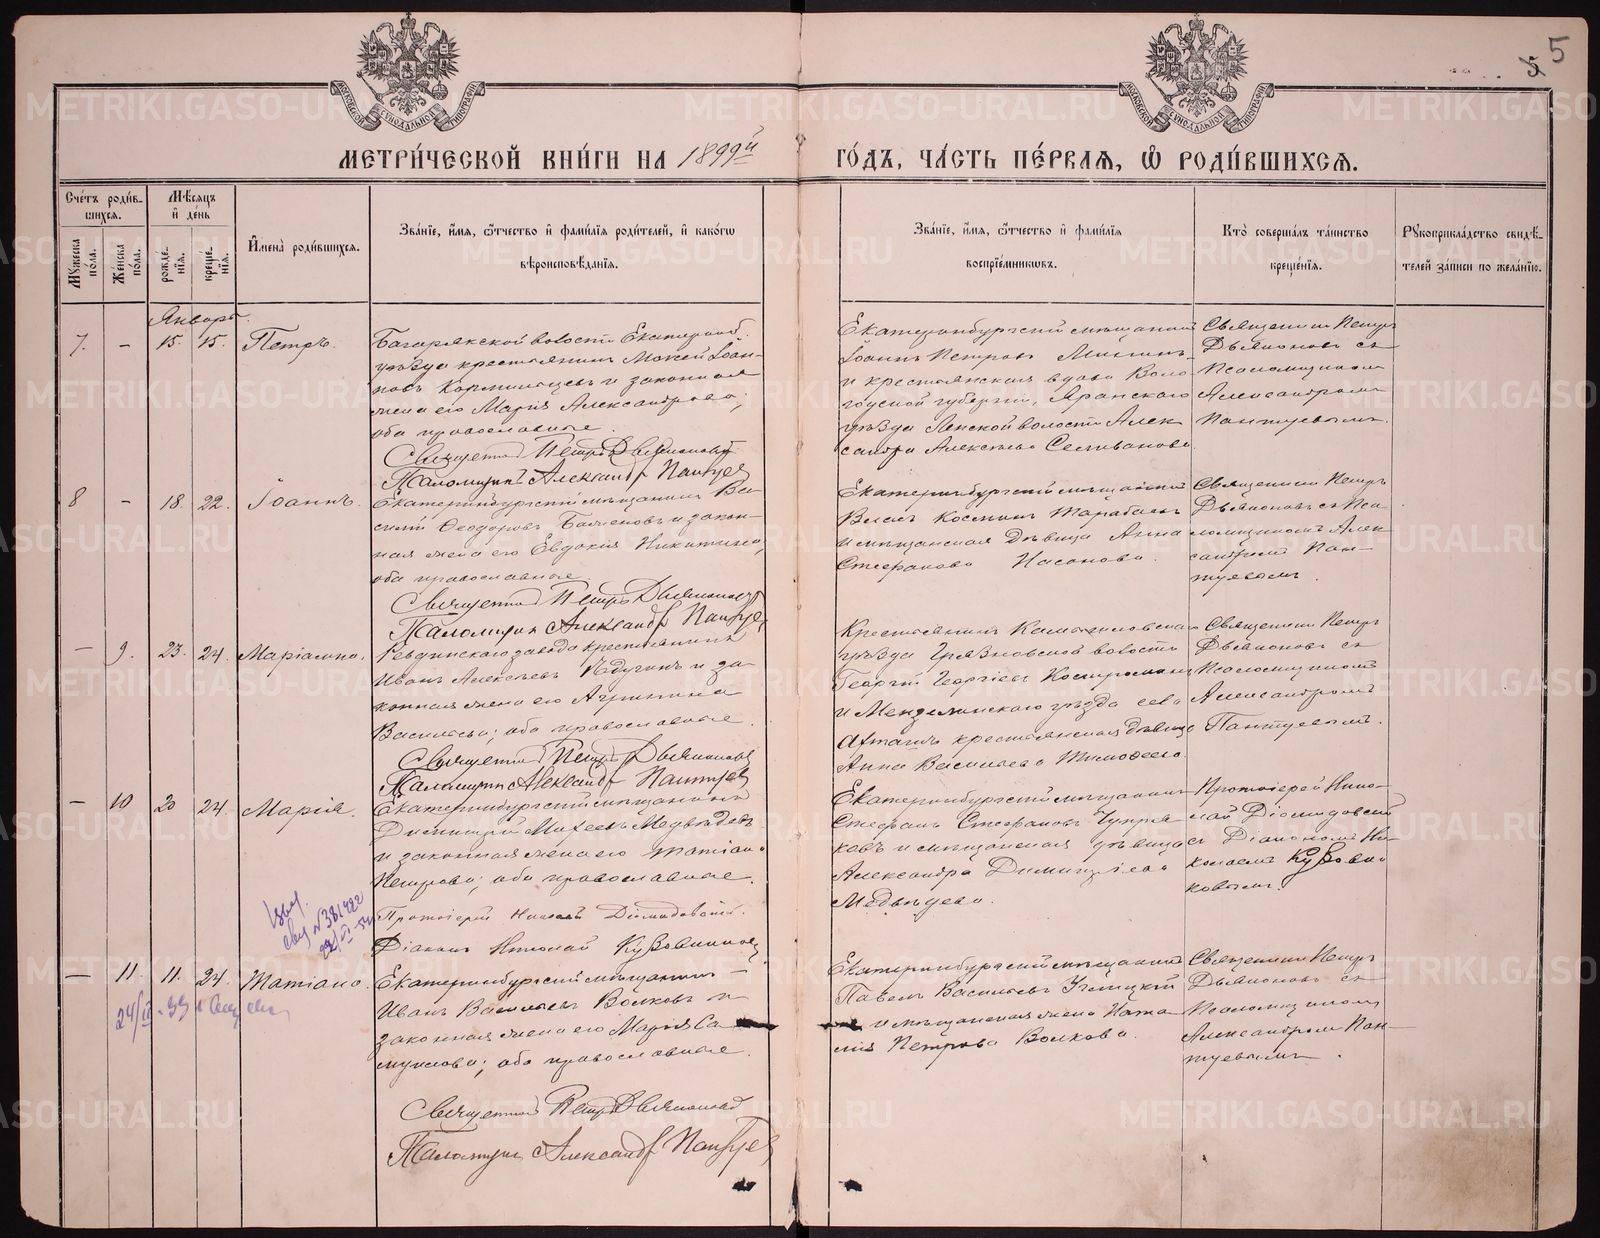 5 5
МОСКОВСКОЙ СѴНОДАЛЬНОЙ ТИПОГРАФІИ
МОСКОВСКОЙ СѴНОДАЛЬНОЙ ТИПОГРАФІИ
МЕТРИ́ЧЕСКОЙ КНИ́ГИ НА 1899й
ГО́ДЪ, ЧА́СТЬ ПЕ́РВАѦ, Ѡ҆ РОДИ́ВШИХСѦ.
Сче́тъ роди́вшихсѧ.
Мꙋ́жеска по́ла.
Же́нска по́ла.
Мѣ́сѧцъ и҆ де́нь
рожде́нїѧ.
креще́нїѧ.
И҆мена̀ роди́вшихсѧ.
Зва́нїе, и҆́мѧ, ѻ҆́тчество и҆ фами́лїѧ роди́телей, и҆ како́гѡ вѣроисповѣ́данїѧ.
Зва́нїе, и҆́мѧ, ѻ҆́тчество и҆ фами́лїѧ воспрїе́мникѡвъ.
Кто̀ соверша́лъ та́инство креще́нїѧ.
Рꙋкоприкла́дство свидѣ́телей за́писи по жела́нїю.
Январь.
7. – 15. 15. Петръ.
Багарякской волости Екатеринб.
уѣзда крестьянинъ Моисей Іоан-
новъ Кормильцевъ и законная
жена его Марія Александрова;
оба православные.
Священникъ Петръ Дьяконовъ
Псаломщикъ Александръ Пантуевъ
Екатеринбургскій мѣщанинъ
Іоаннъ Петровъ
и крестьянская вдова Воло-
годской губерніи, Яранскаго
уѣзда волости Алек-
сандра Алексѣева Селиванова
Священникъ Петръ
Дьяконовъ съ
псаломщикомъ
Александромъ
Пантуевымъ.
8 – 18. 22. Іоаннъ.
Екатеринбургскій мѣщанинъ Ва-
силій Ѳеодоровъ и закон-
ная жена его Евдокія Никитина,
оба православные.
Священникъ Петръ Дьяконовъ
Псаломщикъ Александръ Пантуевъ
Екатеринбургскій мѣщанинъ
Власъ Космин
и мѣщанская дѣвица Анна
Стефанова Насонова.
Священникъ Петръ
Дьяконовъ съ пса-
ломщикомъ Алек-
сандромъ Пан-
туевымъ.
– 9. 23. 24. Маріамна.
Ревдинскаго завода крестьянинъ
Иванъ Алексѣевъ и за-
конная жена его Агрипина
Васильева; оба православные.
Священникъ Петръ Дьяконовъ
Псаломщикъ Александръ Пантуевъ
Крестьянинъ Камышловскаго
уѣзда Грязновской волости
Георгій Георгіевъ
и Мензелинскаго уѣзда села
крестьянская дѣвица
Анна Васильева Тимофеева.
Священникъ Петръ
Дьяконовъ съ
псаломщикомъ
Александромъ
Пантуевымъ.
– 10 20 24. Марія.
Екатеринбургскій мѣщанинъ
Димитрій Михеевъ Медвѣдевъ
и законная жена его Татіана
Петрова; оба православные.
Протоіерей Николай Діомидовскій.
Діаконъ Николай Кузовниковъ
Екатеринбургскій мѣщанинъ
Стефанъ Стефановъ Чупра-
ковъ и мѣщанская дѣвица
Александра Димитріева
Медвѣдева.
Протоіерей Нико-
лай Діомидовскій
съ Діакономъ Ни-
колаемъ Кузовни-
ковымъ.
№381422
– 11. 11. 24. Татіана.
Екатеринбургскій мѣщанинъ –
Иванъ Васильевъ Волковъ и
законная жена его Марія Са-
муилова; оба православные.
Священникъ Петръ Дьяконовъ
Псаломщикъ Александръ Пантуевъ
Екатеринбургскій мѣщанинъ
Павелъ Васильевъ Углицкій
и мѣщанская жена Ната-
лія Петрова Волкова.
Священникъ Петръ
Дьяконовъ съ
псаломщикомъ
Александромъ Пан-
туевымъ.
METRIKI.GASO-URAL.RU